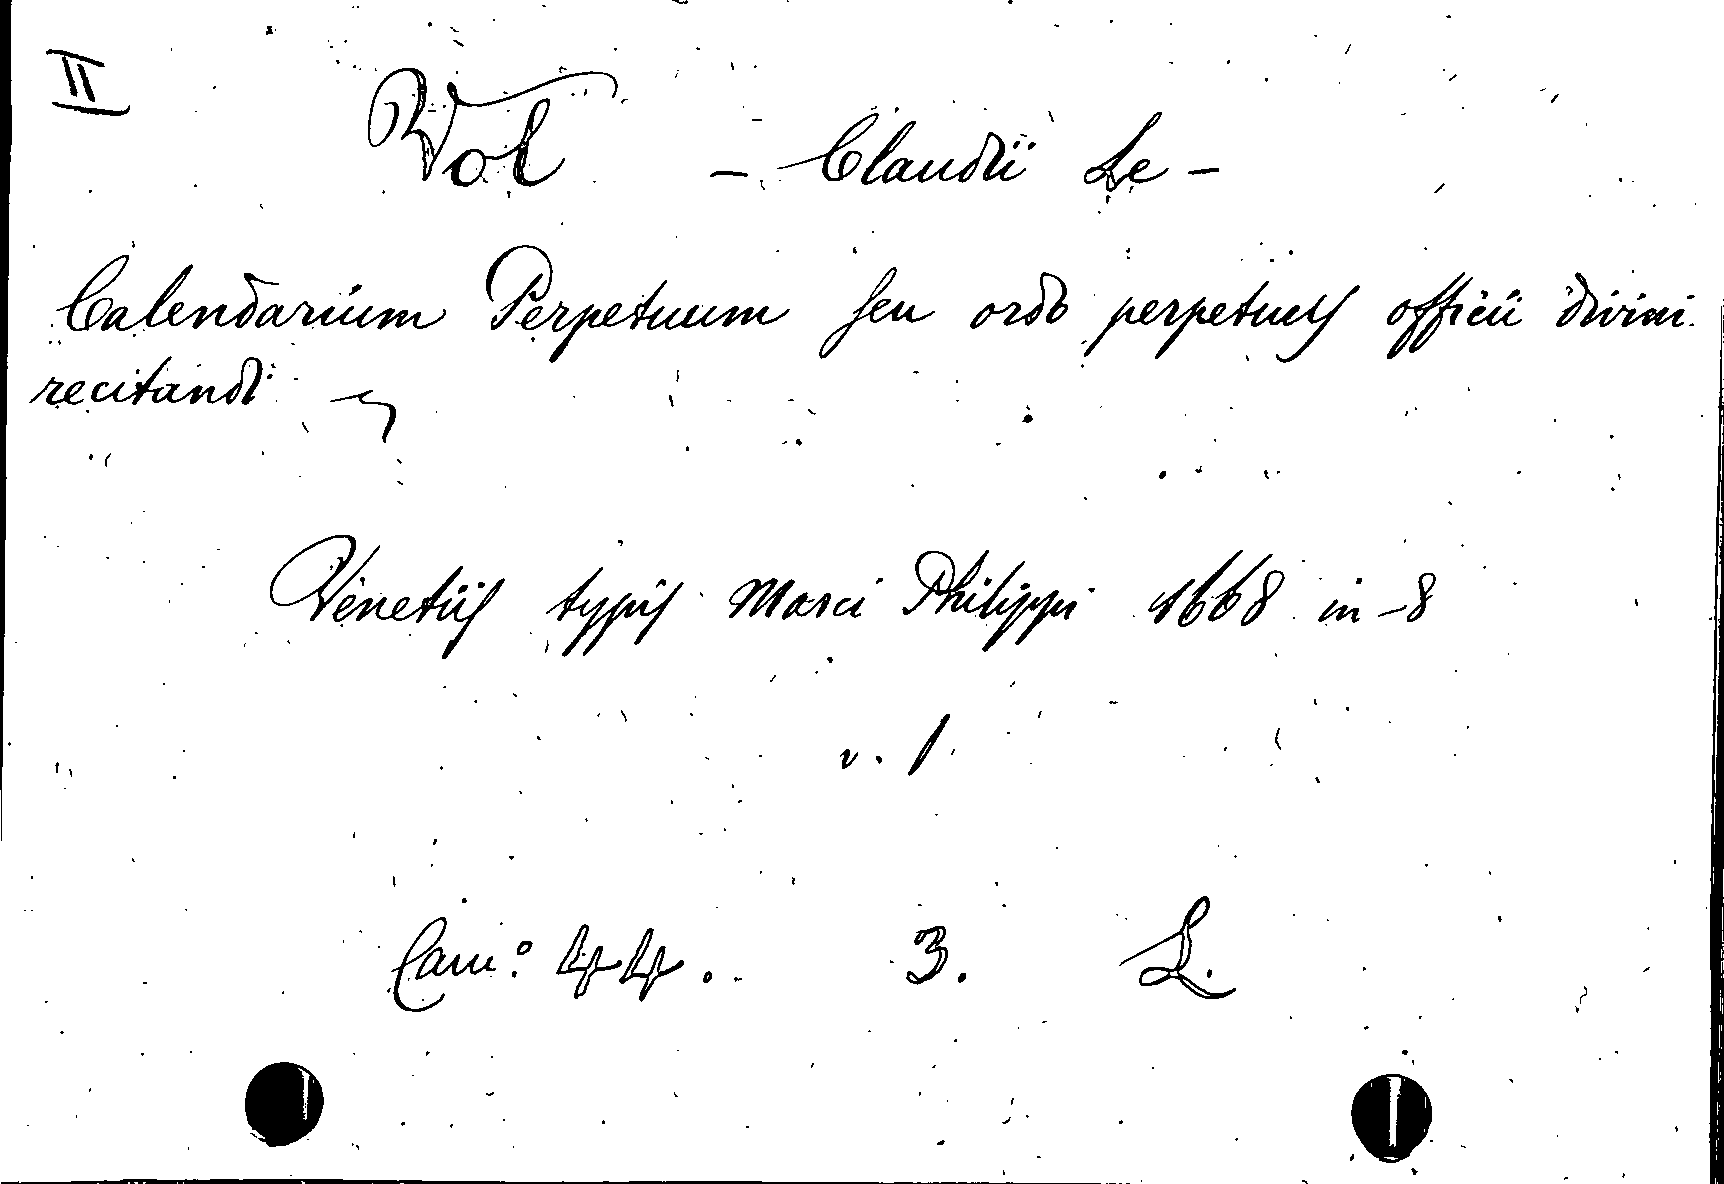 II
Vol - Claudii Le -
Calendarium Perpetuum seu ordo perpetuus officii divini
recitandi
Venetiis typis Marci Philippi 1668 in-8
v. 1
Cam: 44. 3. L.